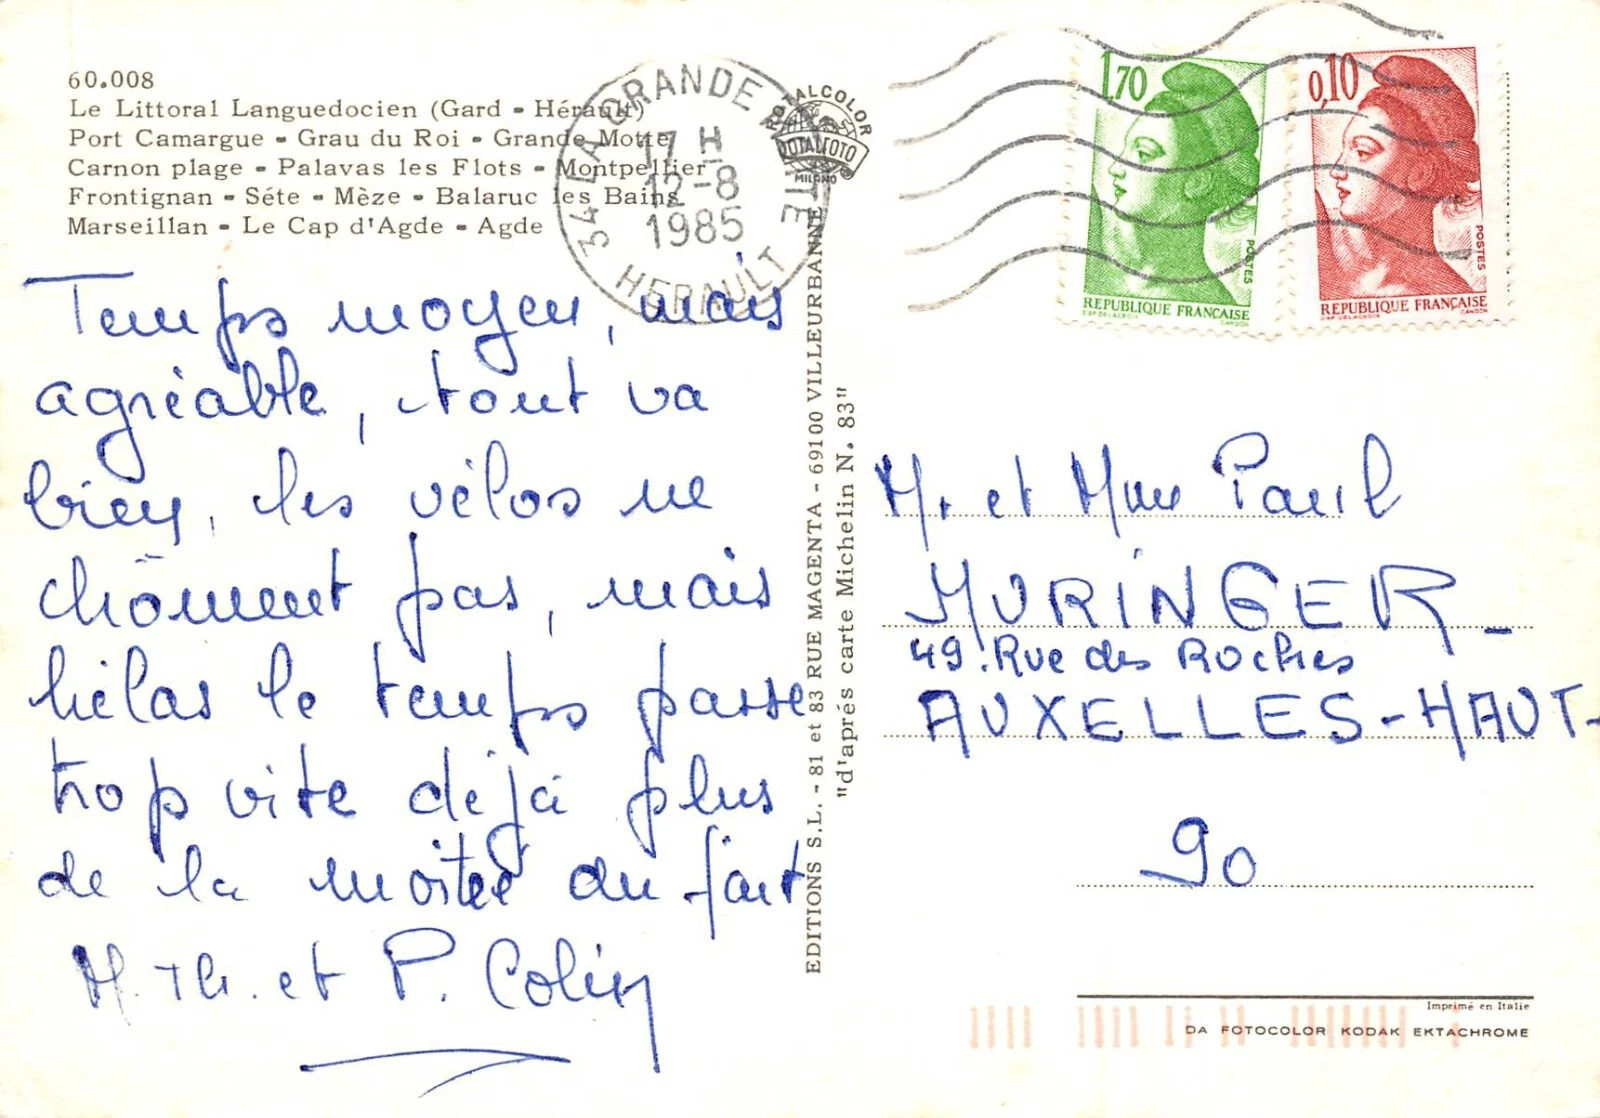 60.008
Le Littoral Languedocien (Gard - Hérault)
Port Camargue - Grau du Roi - Grande Motte
Carnon plage - Palavas les Flots - Montpellier
Frontignan - Séte - Mèze - Balaruc les Bains
Marseillan - Le Cap d'Agde - Agde
34 LA GRANDE MOTTE
17 H
12-8
1985
HERAULT
ROTALCOLOR
ROTALFOTO
MILANO
1,70
POSTES
REPUBLIQUE FRANÇAISE
D'AP. DELACROIX
GANDON
0,10
POSTES
REPUBLIQUE FRANÇAISE
D'AP. DELACROIX
GANDON
Temps moyen, mais
agréable, tout va
bien, les vélos ne
chôment pas, mais
hélas le temps passe
trop vite déjà plus
de la moitée du fait
M. Th. et P. Colin
EDITIONS S.L. - 81 et 83 RUE MAGENTA - 69100 VILLEURBANNE
"d'aprés carte Michelin N. 83"
M. et Mme Paul
MURINGER -
49. Rue des Roches
AUXELLES-HAUT-
90
Imprimé en Italie
DA FOTOCOLOR KODAK EKTACHROME